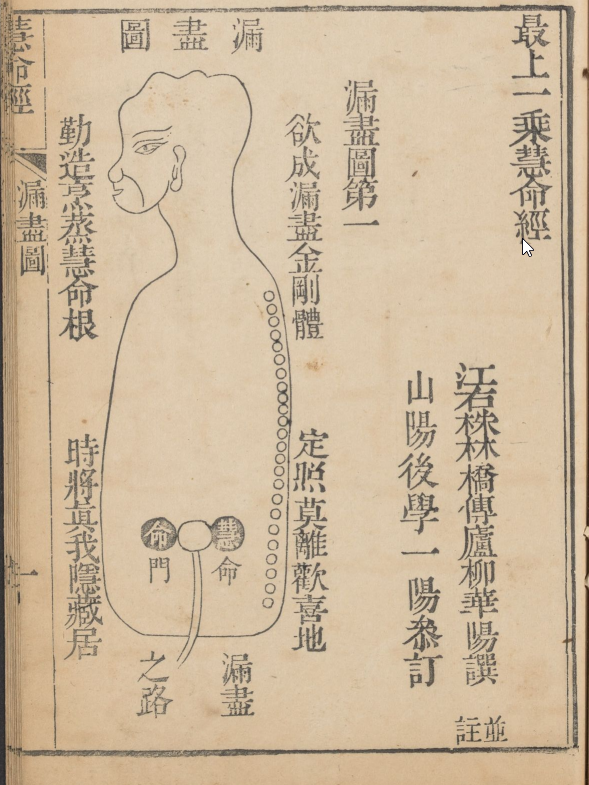 最上一乘慧命經
江右株林橋傳廬柳華陽譔
並註
山陽後學一陽叅訂
漏盡圖第一
漏盡圖
欲成漏盡金剛體
定照莫離歡喜地
慧命
命門
漏盡
之路
勤造烹蒸慧命根
時將眞我隱藏居
慧命經
漏盡圖
一